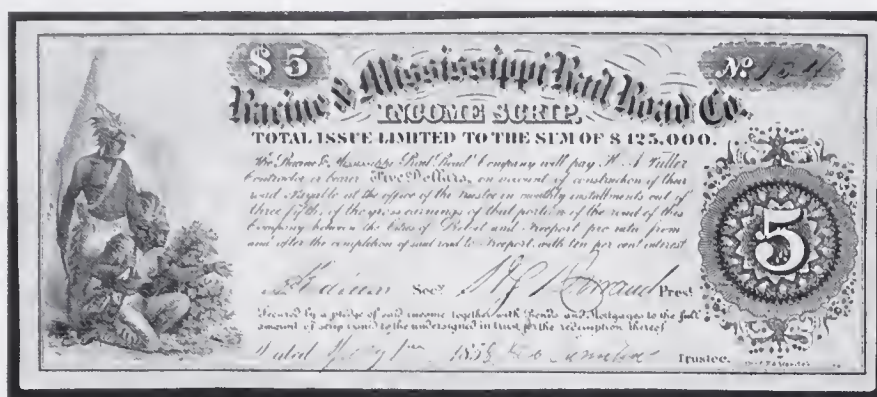 $5
No.
Racine & Mississippi Rail Road Co.
INCOME SCRIP.
TOTAL ISSUE LIMITED TO THE SUM OF $125,000.
The Racine & Mississippi Rail Road Company will pay W. A. Fuller
Contractor or bearer Five Dollars, on account of construction of their
road. Payable at the office of the Trustee in monthly installments out of
three fifths of the gross earnings of that portion of the road of this
Company between the Cities of Beloit and Freeport pro rata from
and after the completion of said road to Freeport, with ten per cent interest
5
Secy. Prest.
Secured by a pledge of said income together with Bonds and Mortgages to the full
amount of scrip issued to the undersigned in trust for the redemption thereof
Dated 1858 Trustee.